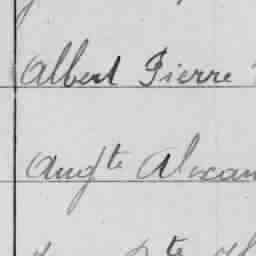 Albert Pierre
Aug^te Alexan